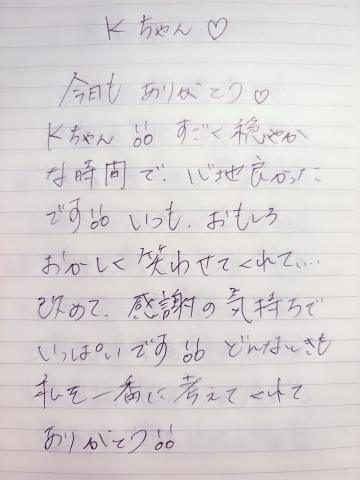 Kちゃん♡
今日も ありがとう♡
Kちゃん!! すごく穏やか
な時間で、心地良かった
です!! いつも、おもしろ
おかしく笑わせてくれて....
改めて、感謝の気持ちで
いっぱいです!! どんなときも
私を一番に考えてくれて
ありがとう!!